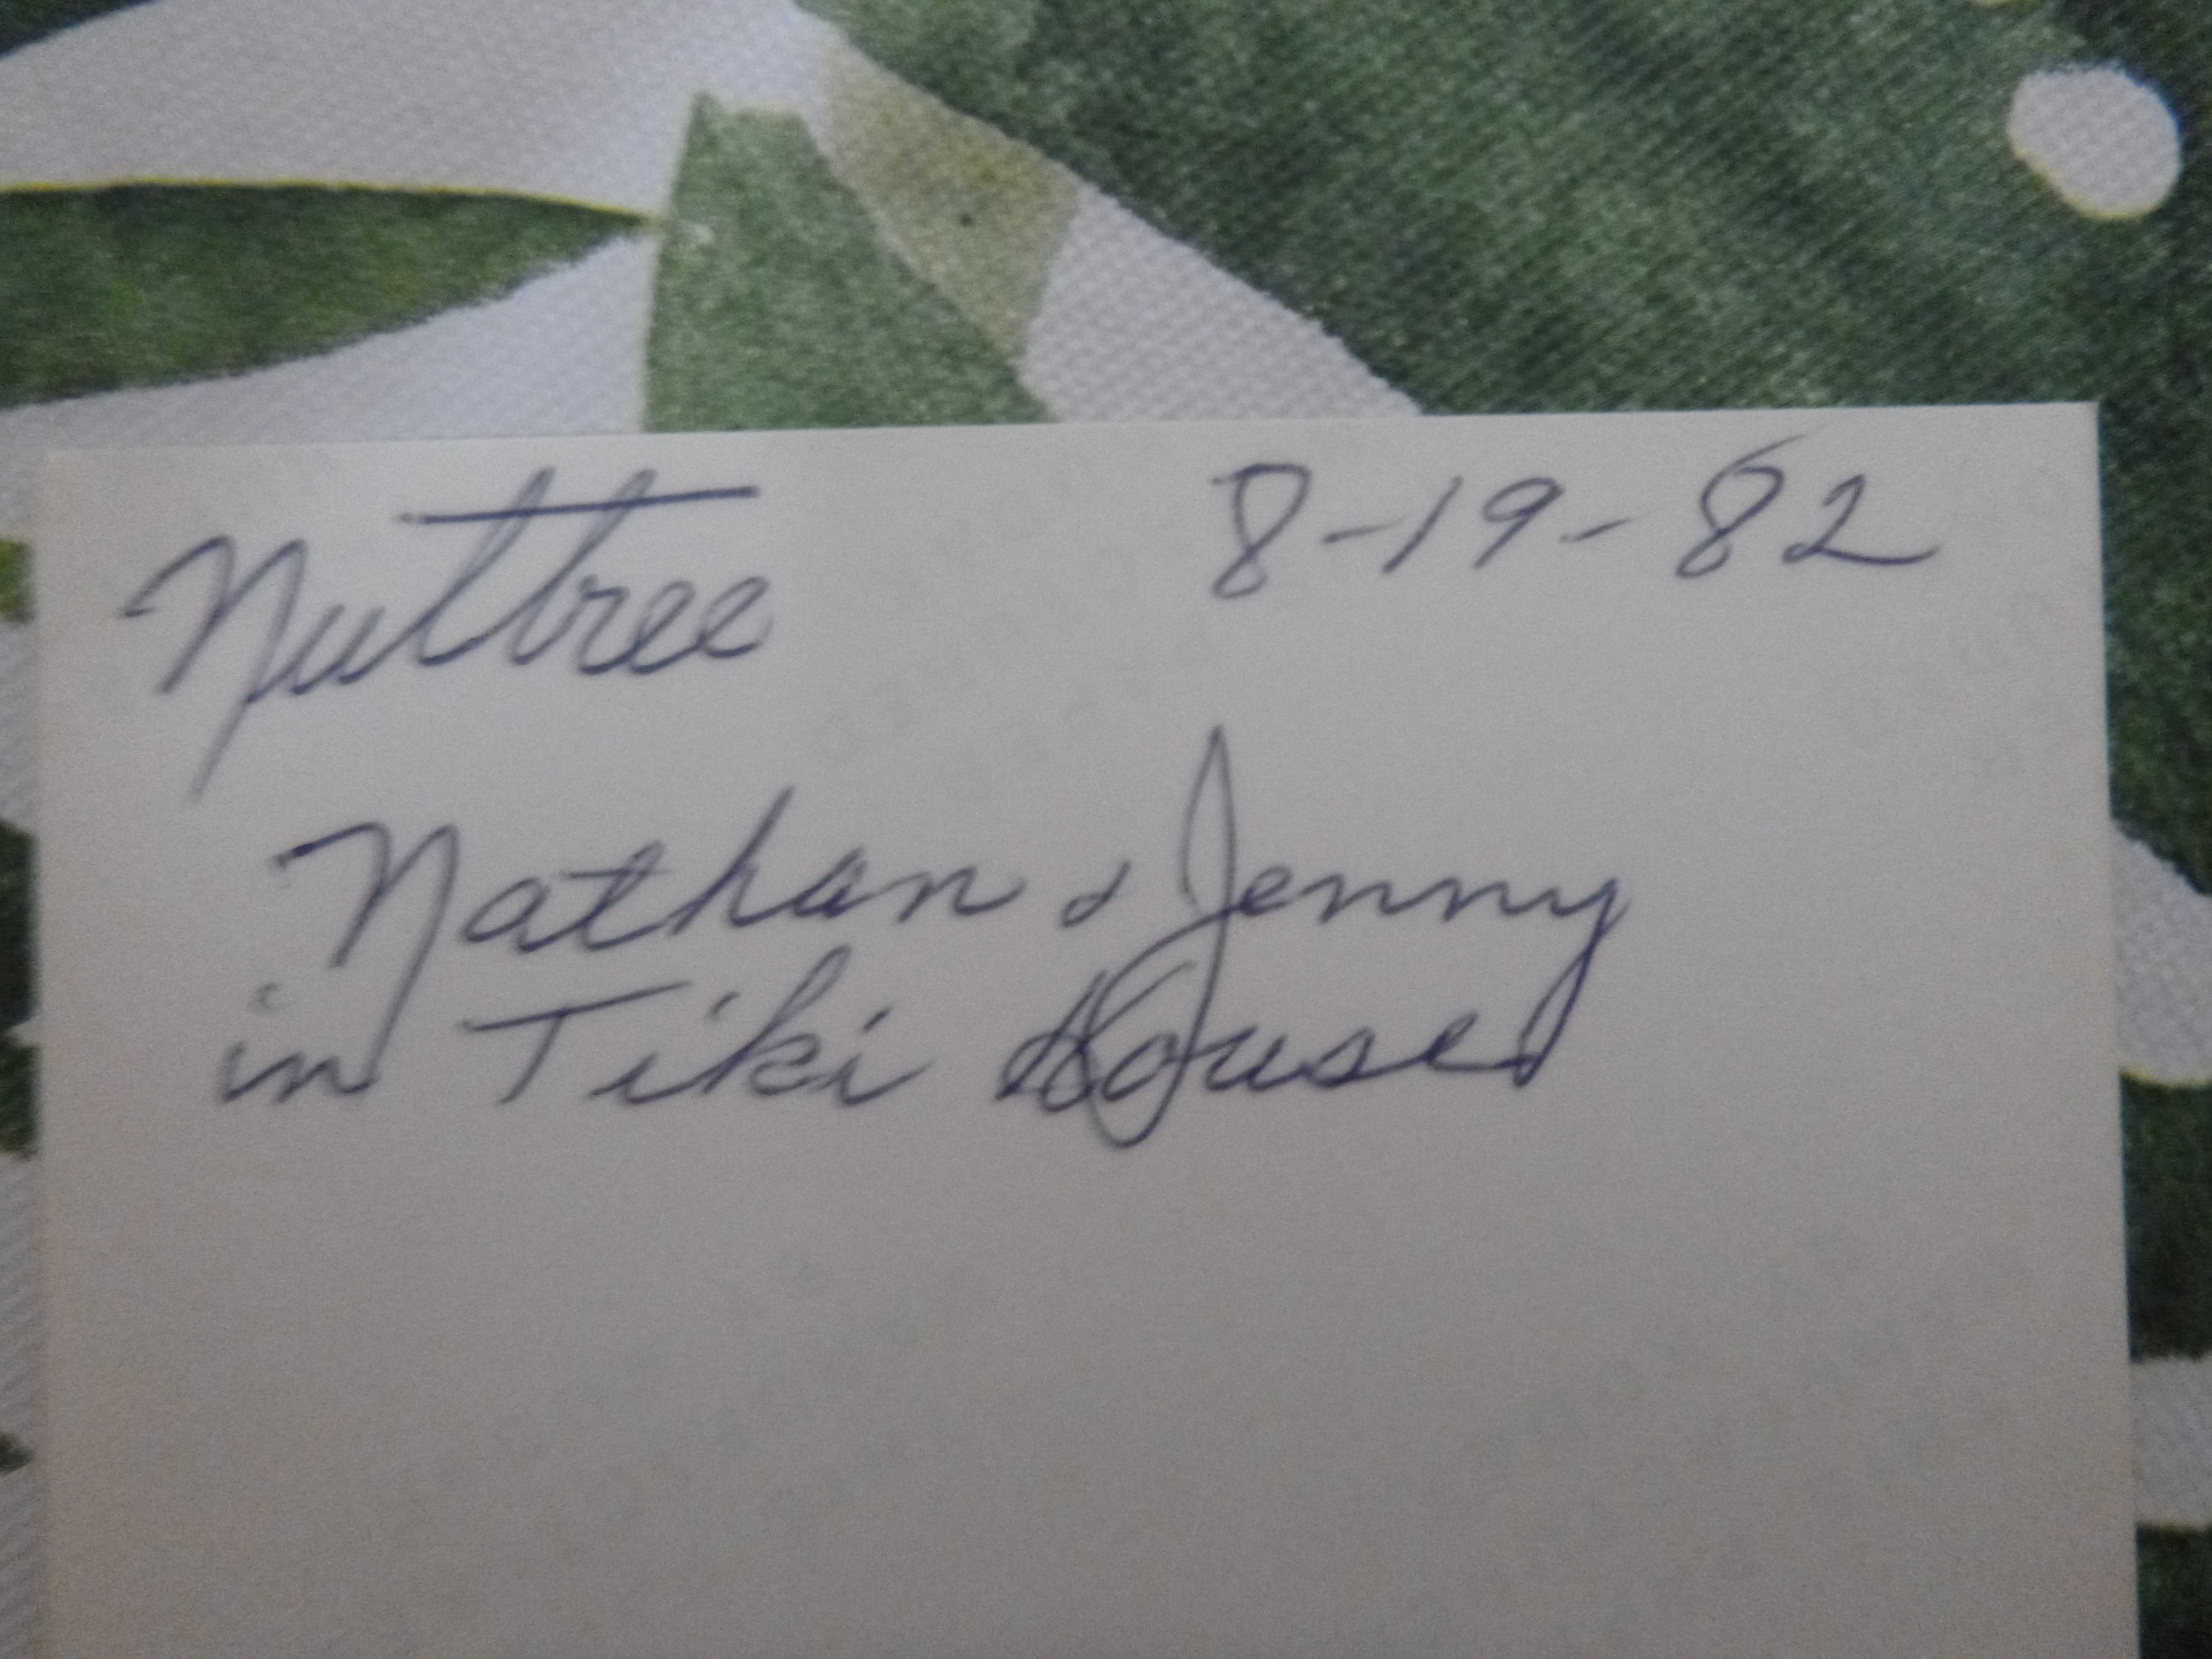 Nuttree 8-19-82
Nathan & Jenny
in Tiki House